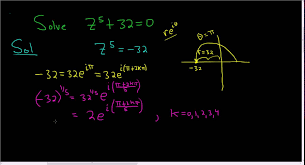 Solve z⁵+32=0
Sol z⁵ = -32
re^{iθ}
θ=π
r=32
-32
-32=32e^{iπ} = 32e^{i(π+2kπ)}
(-32)^{1/5} = 32^{1/5} e^{i(\frac{π+2kπ}{5})}
= 2e^{i(\frac{π+2kπ}{5})} , k=0,1,2,3,4